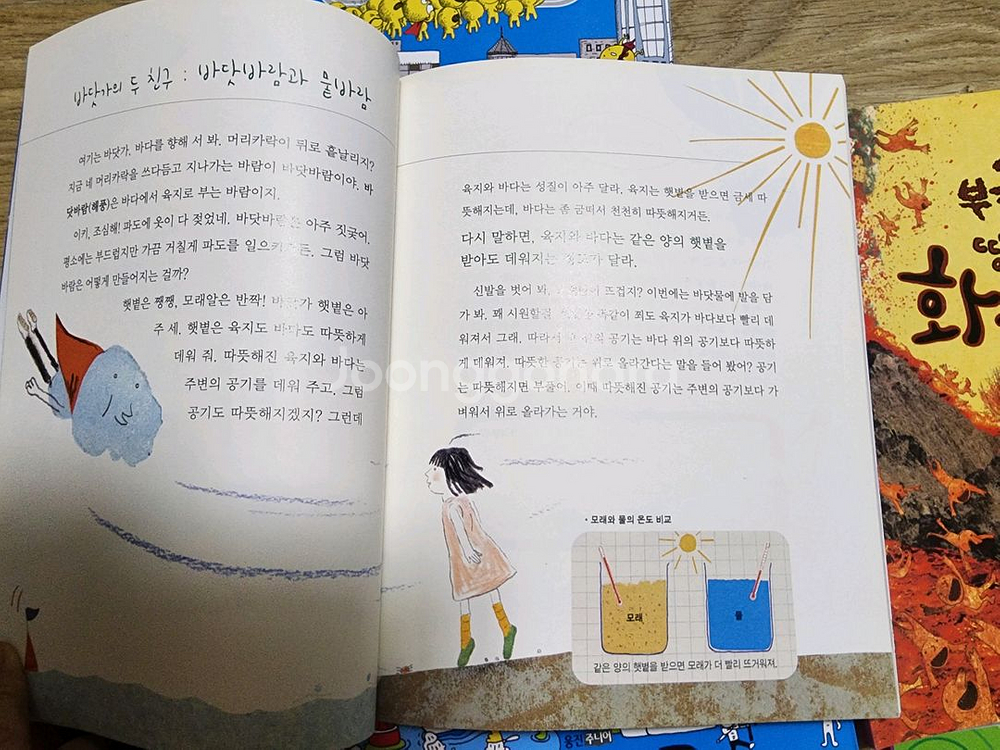 바닷가의 두 친구 : 바닷바람과 뭍바람
여기는 바닷가. 바다를 향해 서 봐. 머리카락이 뒤로 흩날리지?
지금 네 머리카락을 쓰다듬고 지나가는 바람이 바닷바람이야. 바
닷바람(해풍)은 바다에서 육지로 부는 바람이지.
이키, 조심해! 파도에 옷이 다 젖었네. 바닷바람은 아주 짓궂어.
평소에는 부드럽지만 가끔 거칠게 파도를 일으키거든. 그럼 바닷
바람은 어떻게 만들어지는 걸까?
햇볕은 쨍쨍, 모래알은 반짝! 바닷가 햇볕은 아
주 세. 햇볕은 육지도 바다도 따뜻하게
데워 줘. 따뜻해진 육지와 바다는
주변의 공기를 데워 주고. 그럼
공기도 따뜻해지겠지? 그런데
육지와 바다는 성질이 아주 달라. 육지는 햇볕을 받으면 금세 따
뜻해지는데, 바다는 좀 굼떠서 천천히 따뜻해지거든.
다시 말하면, 육지와 바다는 같은 양의 햇볕을
받아도 데워지는 정도가 달라.
신발을 벗어 봐. 뜨겁지? 이번에는 바닷물에 발을 담
가 봐. 꽤 시원할걸. 똑같이 쬐도 육지가 바다보다 빨리 데
워져서 그래. 따라서 위의 공기는 바다 위의 공기보다 따뜻하
게 데워져. 따뜻한 공기는 위로 올라간다는 말을 들어 봤어? 공기
는 따뜻해지면 부풀어. 이때 따뜻해진 공기는 주변의 공기보다 가
벼워서 위로 올라가는 거야.
· 모래와 물의 온도 비교
모래
물
같은 양의 햇볕을 받으면 모래가 더 빨리 뜨거워져.
화
웅진주니어